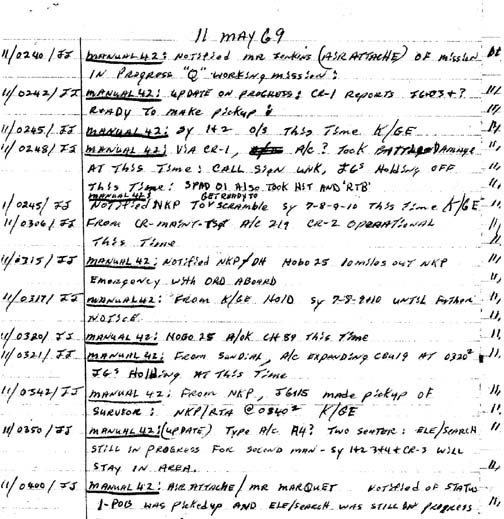 11 MAY 69
11/0240/JJ MANUAL 42: NOTIFIED MR JENKINS (AIR ATTACHE) OF MISSION
IN PROGRESS "Q" WORKING MISSION:
11/0242/JJ MANUAL 42: UPDATE ON PROGRESS: CR-1 REPORTS JG403+?
READY TO MAKE PICKUP:
11/0245/ MANUAL 42: SY 1+2 O/S THIS TIME K/GE
11/0248/JJ MANUAL 42: VIA CR-1, A/C? TOOK BATTLE DAMAGE
AT THIS TIME: CALL SIGN UNK, JG'S HOLDING OFF
THIS TIME: SPAD 01 ALSO TOOK HIT AND 'RTB'
MANUAL 42: GET READY TO
11/0245/JJ NOTIFIED NKP TO SCRAMBLE SY 7-8-9-10 THIS TIME K/GE
11/0306/JJ FROM CR-MAINT- A/C 219 CR-2 OPERATIONAL
THIS TIME
11/0315/JJ MANUAL 42: NOTIFIED NKP/DH HOBO 25 10 MILES OUT NKP
EMERGENCY WITH ORD ABOARD
11/0317/JJ MANUAL 42: FROM K/GE HOLD SY 7-8-9+10 UNTIL FURTHER
NOTICE
11/0320/JJ MANUAL 42: HOBO 25 A/OK CH 89 THIS TIME
11/0321/JJ MANUAL 42: FROM SUNDIAL, A/C EXPANDING CBU19 AT 0320Z
JG'S HOLDING AT THIS TIME
11/0342/JJ MANUAL 42: FROM NKP, JG115 MADE PICKUP OF
SURVIVOR: NKP/RTA @ 0340Z K/GE
11/0350/JJ MANUAL 42: (UPDATE) TYPE A/C A4? TWO SEATER: ELE/SEARCH
STILL IN PROGRESS FOR SECOND MAN - SY 1+2 3+4+CR-3 WILL
STAY IN AREA.
11/0400/JJ MANUAL 42: AIR ATTACHE/MR MARQUET NOTIFIED OF STATUS
1-POB WAS PICKED UP AND ELE/SEARCH WAS STILL IN PROGRESS